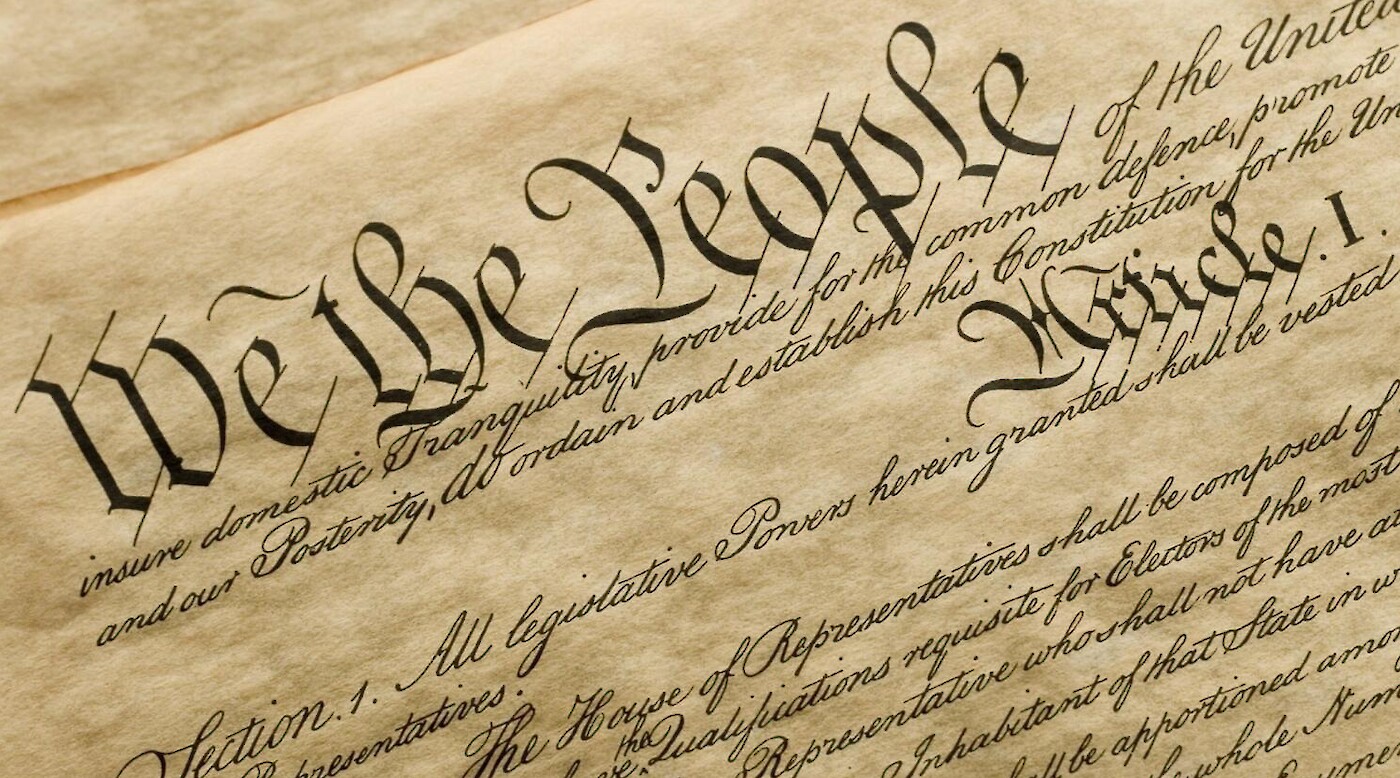 We the People of the United
insure domestic Tranquility, provide for the common defence, promote
and our Posterity, do ordain and establish this Constitution for the Un
Article. I.
Section. 1. All legislative Powers herein granted shall be vested
Representatives.
The House of Representatives shall be composed of
the Qualifications requisite for Electors of the most
Representative who shall not have
Inhabitant of that State in
be apportioned
whole Num